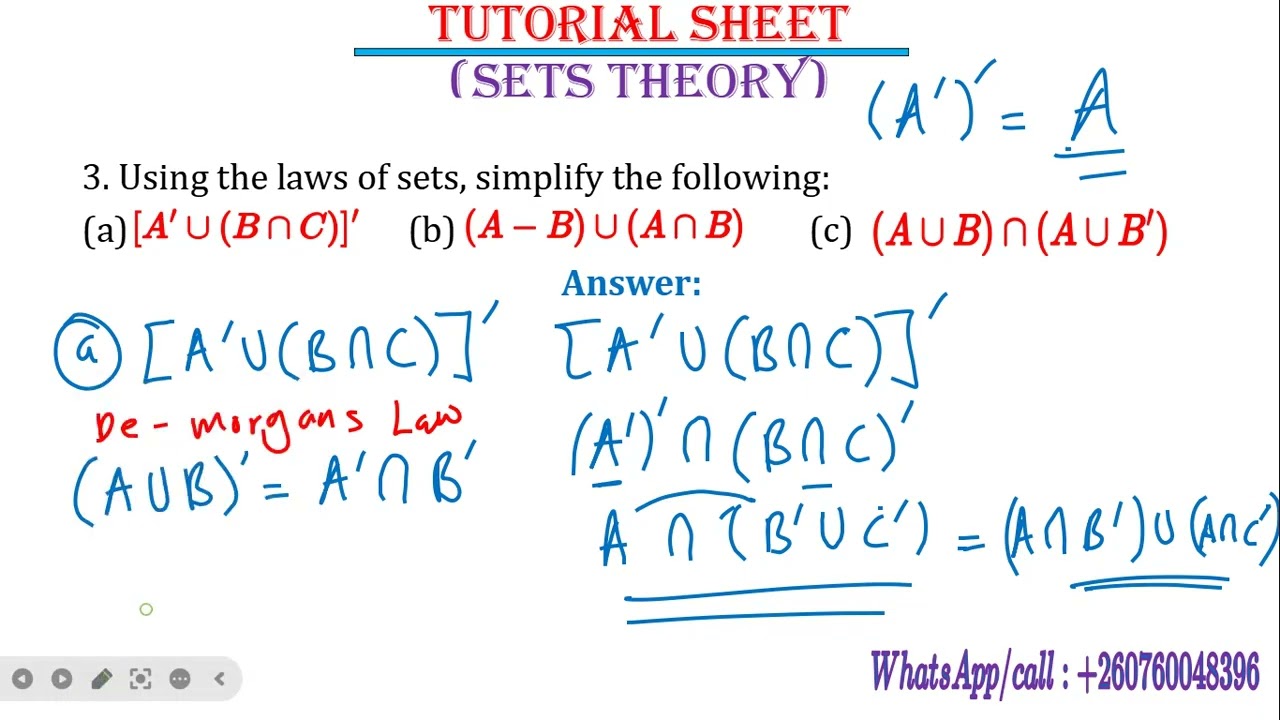 TUTORIAL SHEET
(SETS THEORY)
(A')' = A
3. Using the laws of sets, simplify the following:
(a) [A' ∪ (B ∩ C)]' (b) (A − B) ∪ (A ∩ B) (c) (A ∪ B) ∩ (A ∪ B')
Answer:
a [A' ∪ (B ∩ C)]'
De-morgans Law
(A ∪ B)' = A' ∩ B'
[A' ∪ (B ∩ C)]'
(A')' ∩ (B ∩ C)'
A ∩ (B' ∪ C') = (A ∩ B') ∪ (A ∩ C')
WhatsApp/call : +260760048396